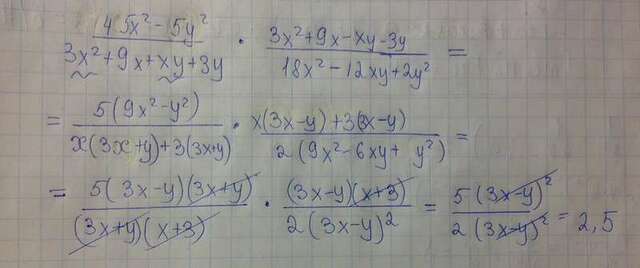 45x² - 5y² / 3x² + 9x + xy + 3y · 3x² + 9x - xy - 3y / 18x² - 12xy + 2y² =
= 5(9x² - y²) / x(3x + y) + 3(3x + y) · x(3x - y) + 3(3x - y) / 2(9x² - 6xy + y²) =
= 5(3x - y)(3x + y) / (3x + y)(x + 3) · (3x - y)(x + 3) / 2(3x - y)² = 5(3x - y)² / 2(3x - y)² = 2,5